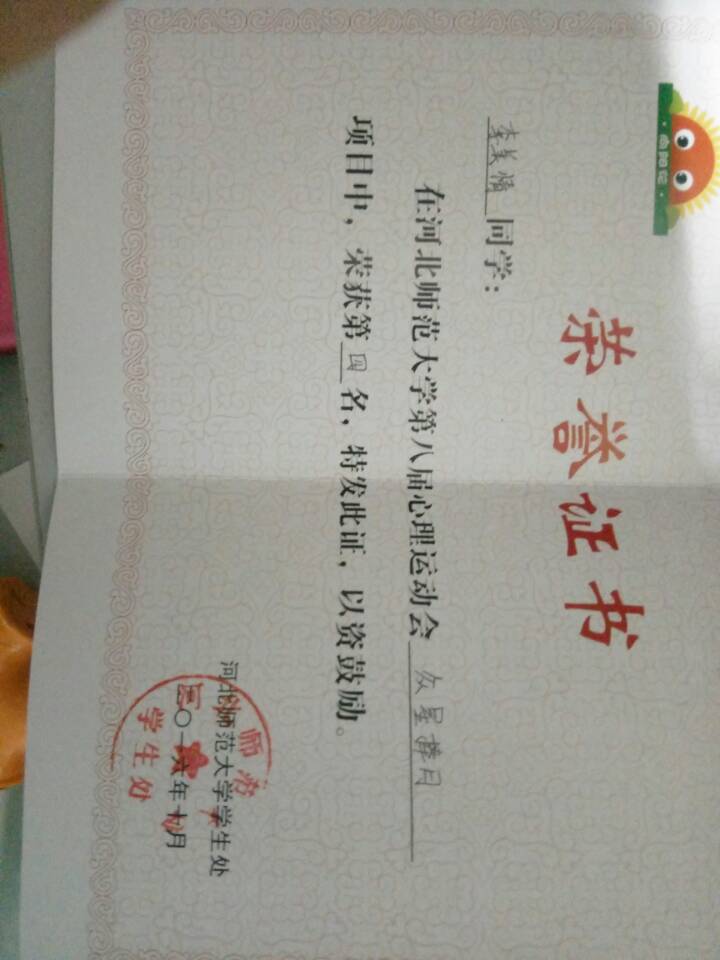 ·向阳花·
荣誉证书
李美情同学：
在河北师范大学第八届心理运动会 众星捧月
项目中，荣获第四名，特发此证，以资鼓励。
河北师范大学学生处
二〇一六年十月
河北师范大学
学生处